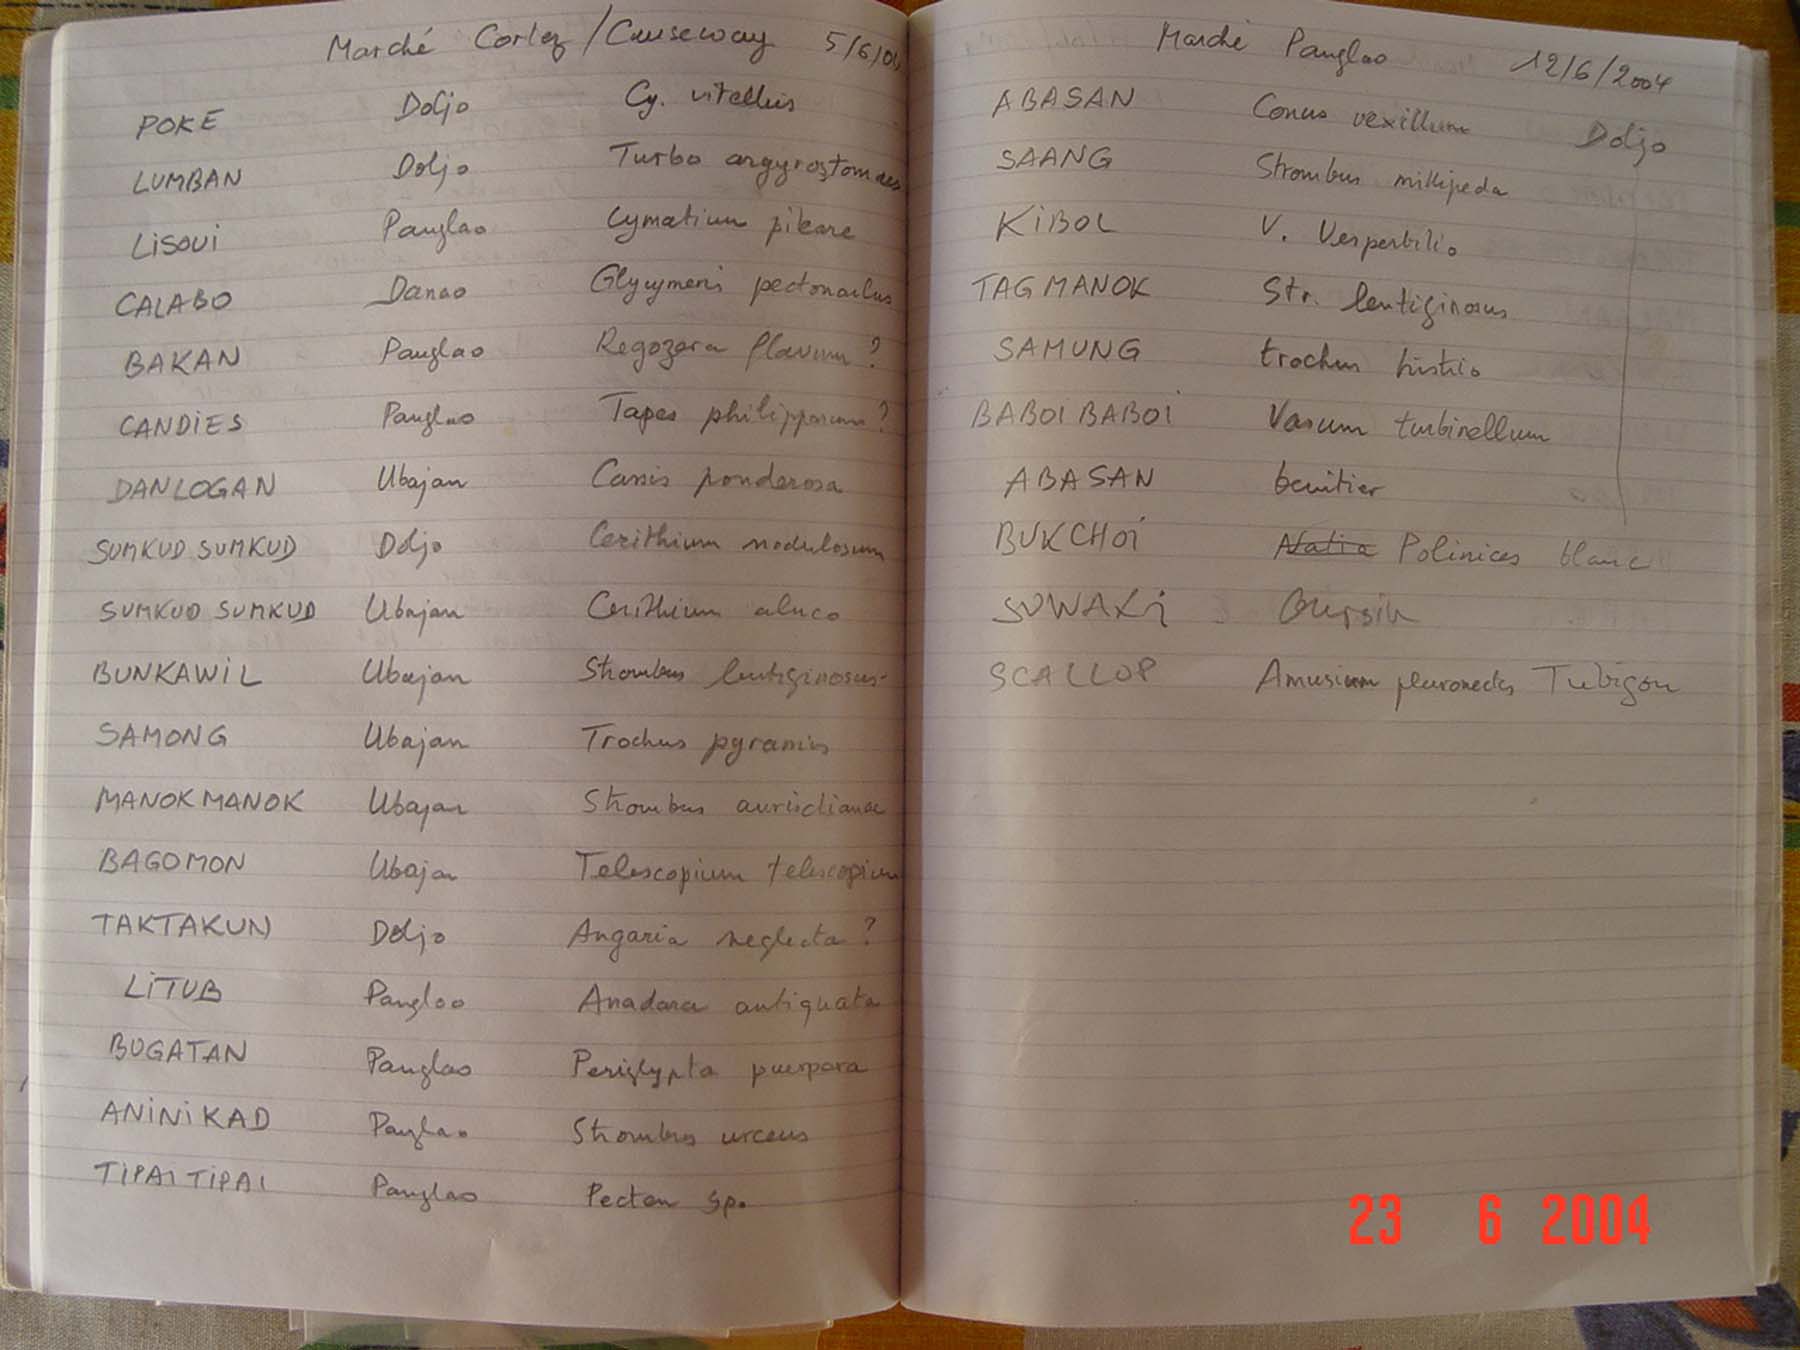 Marché Cortez/Causeway 5/6/04
POKE Doljo Cy. vitellus
LUMBAN Doljo Turbo argyrostomaes
LISOUI Panglao Cymatium pileare
CALABO Danao Glycymeris pectonculus
BAKAN Panglao Regozara flavum ?
CANDIES Panglao Tapes philipparum ?
DANLOGAN Ubajan Cassis ponderosa
SUMKUD SUMKUD Doljo Cerithium nodulosum
SUMKUD SUMKUD Ubajan Cerithium aluco
BUNKAWIL Ubajan Strombus lentiginosus
SAMONG Ubajan Trochus pyramis
MANOK MANOK Ubajan Strombus aurisdianae
BAGOMON Ubajan Telescopium telescopium
TAKTAKUN Doljo Angaria neglecta ?
LITUB Panglao Anadara antiquata
BUGATAN Panglao Periglypta puerpara
ANINIKAD Panglao Strombus urceus
TIPAI TIPAI Panglao Pecten sp.
Marché Panglao 12/6/2004
ABASAN Conus vexillum Doljo
SAANG Strombus millipeda
KIBOL V. Vespertilio
TAGMANOK Str. lentiginosus
SAMUNG trochus histrio
BABOI BABOI Vasum turbinellum
ABASAN benitier
BUKCHOI Natia Polinices blanc
SUWAKI Oursin
SCALLOP Amusium pleuronectes Tubigon
23 6 2004